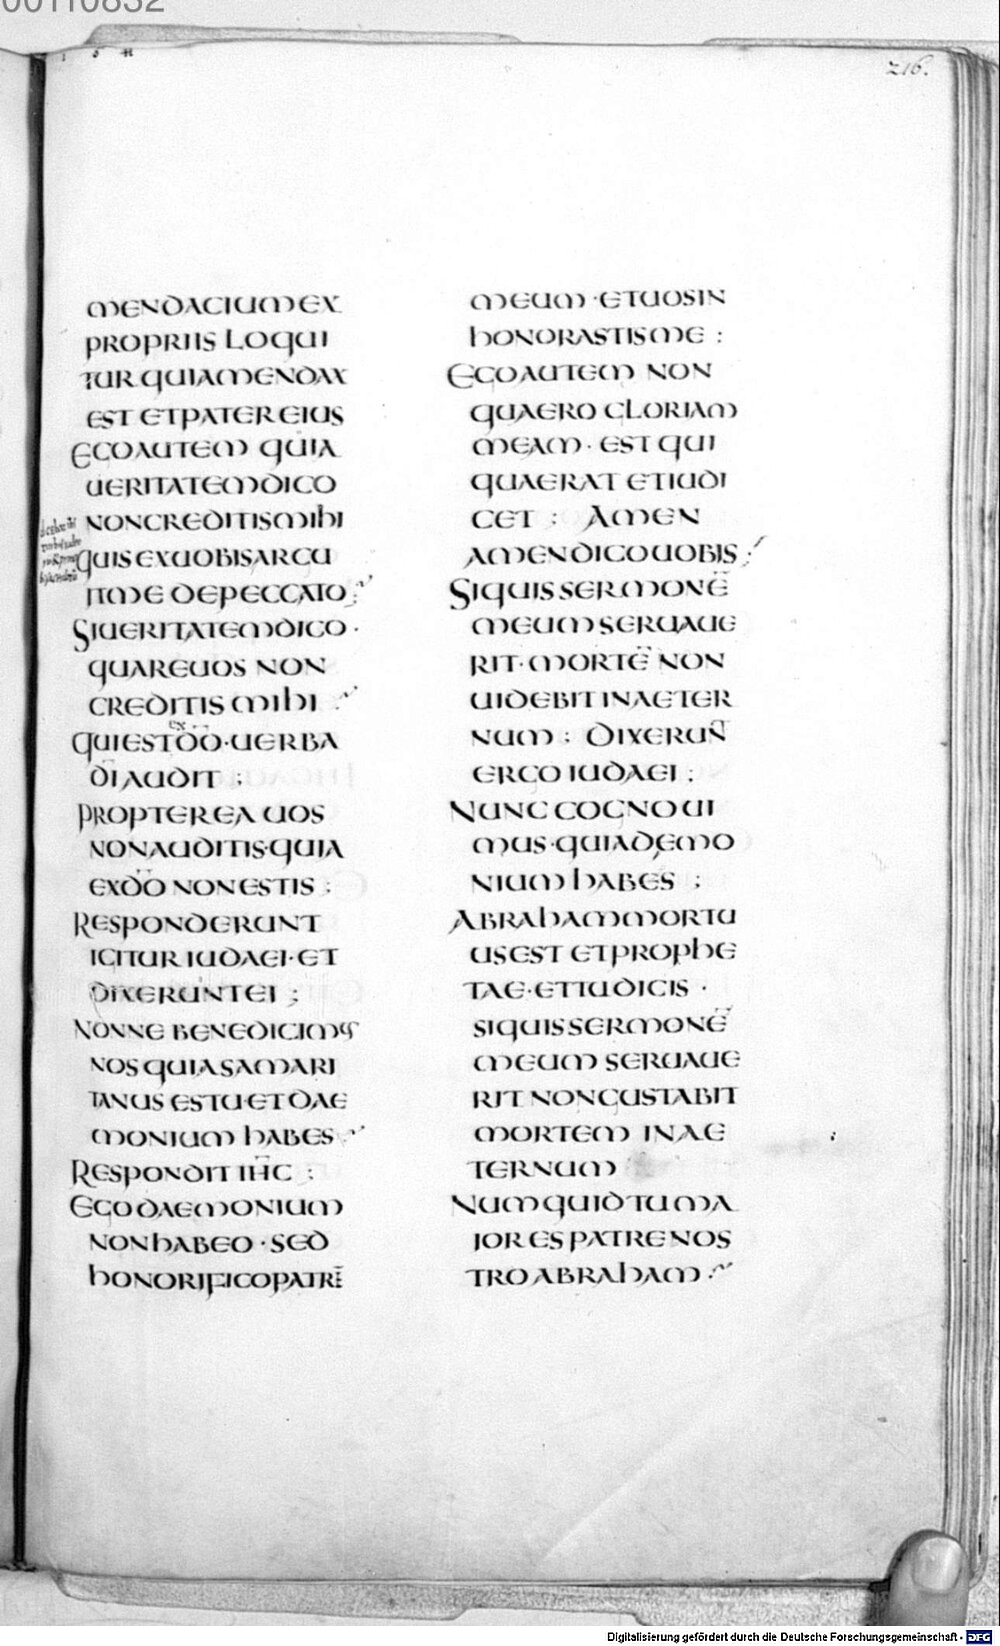 00110832
216.
MENDACIUM EX
PROPRIIS LOQUI
TUR QUIA MENDAX
EST ET PATER EIUS
EGO AUTEM QUIA
UERITATEM DICO
NON CREDITIS MIHI
QUIS EX UOBIS ARGU
IT ME DE PECCATO
SI UERITATEM DICO ·
QUARE UOS NON
CREDITIS MIHI
ex
QUI EST DO · UERBA
DI AUDIT ;
PROPTEREA UOS
NON AUDITIS · QUIA
EX DO NON ESTIS :
RESPONDERUNT
IGITUR IUDAEI · ET
DIXERUNT EI ;
NONNE BENE DICIMUS
NOS QUIA SAMARI
TANUS ES TU ET DAE
MONIUM HABES
RESPONDIT IHC :
EGO DAEMONIUM
NON HABEO · SED
HONORIFICO PATRE
MEUM · ET UOS IN
HONORASTIS ME :
EGO AUTEM NON
QUAERO GLORIAM
MEAM · EST QUI
QUAERAT ET IUDI
CET : AMEN
AMEN DICO UOBIS ;
SI QUIS SERMONE̅
MEUM SERUAUE
RIT · MORTE̅ NON
UIDEBIT IN AETER
NUM : DIXERUN̅
ERGO IUDAEI :
NUNC COGNOUI
MUS · QUIA DEMO
NIUM HABES ;
ABRAHAM MORTU
US EST ET PROPHE
TAE · ET TU DICIS ·
SI QUIS SERMONE̅
MEUM SERUAUE
RIT NON GUSTABIT
MORTEM IN AE
TERNUM
NUMQUID TU MA
IOR ES PATRE NOS
TRO ABRAHAM
Digitalisierung gefördert durch die Deutsche Forschungsgemeinschaft - DFG